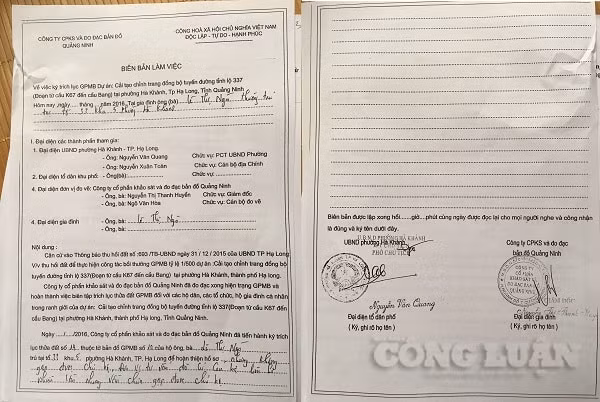 CÔNG TY CPKS VÀ ĐO ĐẠC BẢN ĐỒ
QUẢNG NINH
CỘNG HOÀ XÃ HỘI CHỦ NGHĨA VIỆT NAM
ĐỘC LẬP - TỰ DO - HẠNH PHÚC
BIÊN BẢN LÀM VIỆC
Về việc ký trích lục GPMB Dự án: Cải tạo chỉnh trang đồng bộ tuyến đường tỉnh lộ 337
(Đoạn từ câu K67 đến cầu Bang) tại phường Hà Khánh, Tp Hạ Long, Tỉnh Quảng Ninh
Hôm nay ,ngày..... tháng .... năm 2016. Tại gia đình ông (bà) Lê Thị Ngà thường trú
tại tổ 33 khu 3 Phường Hà Khánh
I. Đại diện các thành phần tham gia:
1. Đại diện UBND phường Hà Khánh - TP. Hạ Long.
- Ông: Nguyễn Văn Quang Chức vụ: PCT UBND Phường
- Ông: Nguyễn Xuân Toàn Chức vụ: Cán bộ địa Chính
2. Đại diện tổ dân khu phố: - Ông(bà):............ Chức vụ: ............
4. Đại diện đơn vị đo vẽ: Công ty cổ phần khảo sát và đo đạc bản đồ Quảng Ninh
- Ông, bà: Nguyễn Thị Thanh Huyền Chức vụ: Giám đốc
- Ông, bà: Ngô Văn Hòa Chức vụ: Cán bộ đo vẽ
4. Đại diện gia đình - Ông, bà: Lê Thị Ngà
Nội dung :
Căn cứ vào Thông báo thu hồi đất số :600 /TB-UBND ngày 31 / 12 / 2015 của UBND TP Hạ Long
V/v thu hồi đất để thực hiện công tác bồi thường GPMB lý lệ 1/500 dự án: Cải tạo chỉnh trang đồng bộ
tuyến đường tỉnh lộ 337(Đoạn từ câu K67 đến cầu Bang) tại phường Hà Khánh, thành phố Hạ long.
Công ty cổ phần khảo sát và đo đạc bản đồ Quảng Ninh đã đo đạc xong hiện trạng GPMB và
hoàn thành việc biên tập trích lục thửa đất GPMB đối với các hộ dân, các tổ chức, hộ gia đình cá nhân
trong ranh giới của dự án: Cải tạo chỉnh trang đồng bộ tuyến đường tỉnh lộ 337(Đoạn từ câu K67 đến cầu
Bang) tại phường Hà Khánh, thành phố Hạ Long, Tỉnh Quảng Ninh.
Ngày..../..../2016, Công ty cổ phần khảo sát và đo đạc bản đồ Quảng Ninh đã tiến hành ký trích
lục thửa đất số thuộc tờ bản đồ GPMB số của hộ ông, bà Lê Thị Ngà
trú tại tổ 33 khu phường Hà Khánh, TP. Hạ Long để hoàn thiện hồ sơ nhưng không
gặp được chủ hộ
nhiều lần nhưng vẫn chưa gặp được chủ hộ
Biên bản được lập xong hồi.....giờ....phút cùng ngày được đọc lại cho mọi người nghe và công nhận
là đúng và ký tên dưới đây.
UBND phường Hà Khánh
Công ty CPKS và đo đạc
bản đồ Quảng Ninh
PHÓ CHỦ TỊCH
Nguyễn Văn Quang
GIÁM ĐỐC
Đại diện tổ dân phố
( Ký, ghi rõ họ tên )
Đại diện gia đình
( Ký, ghi rõ họ tên )
CÔNG LUẬN